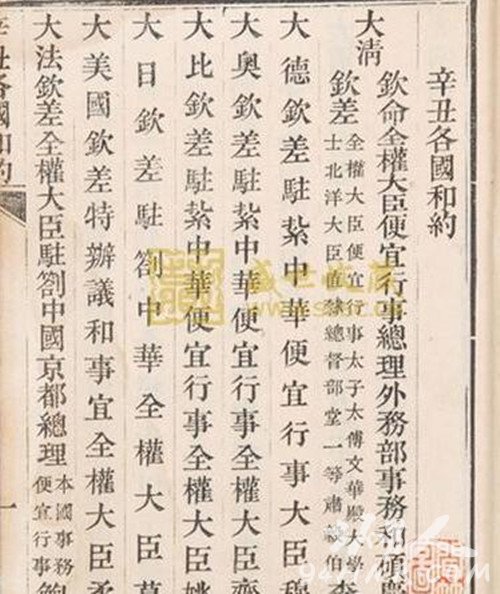 辛丑各國和約
大清
欽命全權大臣便宜行事總理外務部事務和碩慶
欽差全權大臣便宜行事太子太傅文華殿大學
士北洋大臣直隸總督部堂一等肅毅伯李
大德欽差駐紮中華便宜行事大臣穆
大奧欽差駐紮中華便宜行事全權大臣齊
大比欽差駐紮中華便宜行事全權大臣姚
大日欽差駐劄中華全權大臣葛
大美國欽差特辦議和事宜全權大臣柔
大法欽差全權大臣駐劄中國京都總理本國事務
便宜行事鮑
辛丑各國和約
一